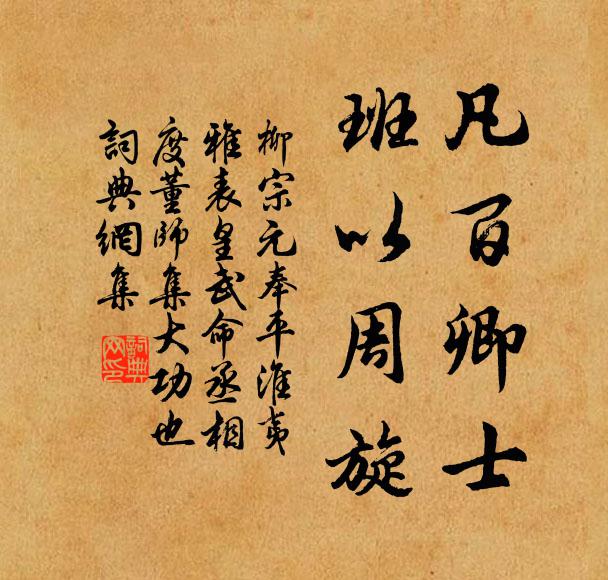 凡百卿士
班以周旋
柳宗元奉平淮夷
雅表皇武命丞相
度董師集大功也
詞典網集
詞典網印